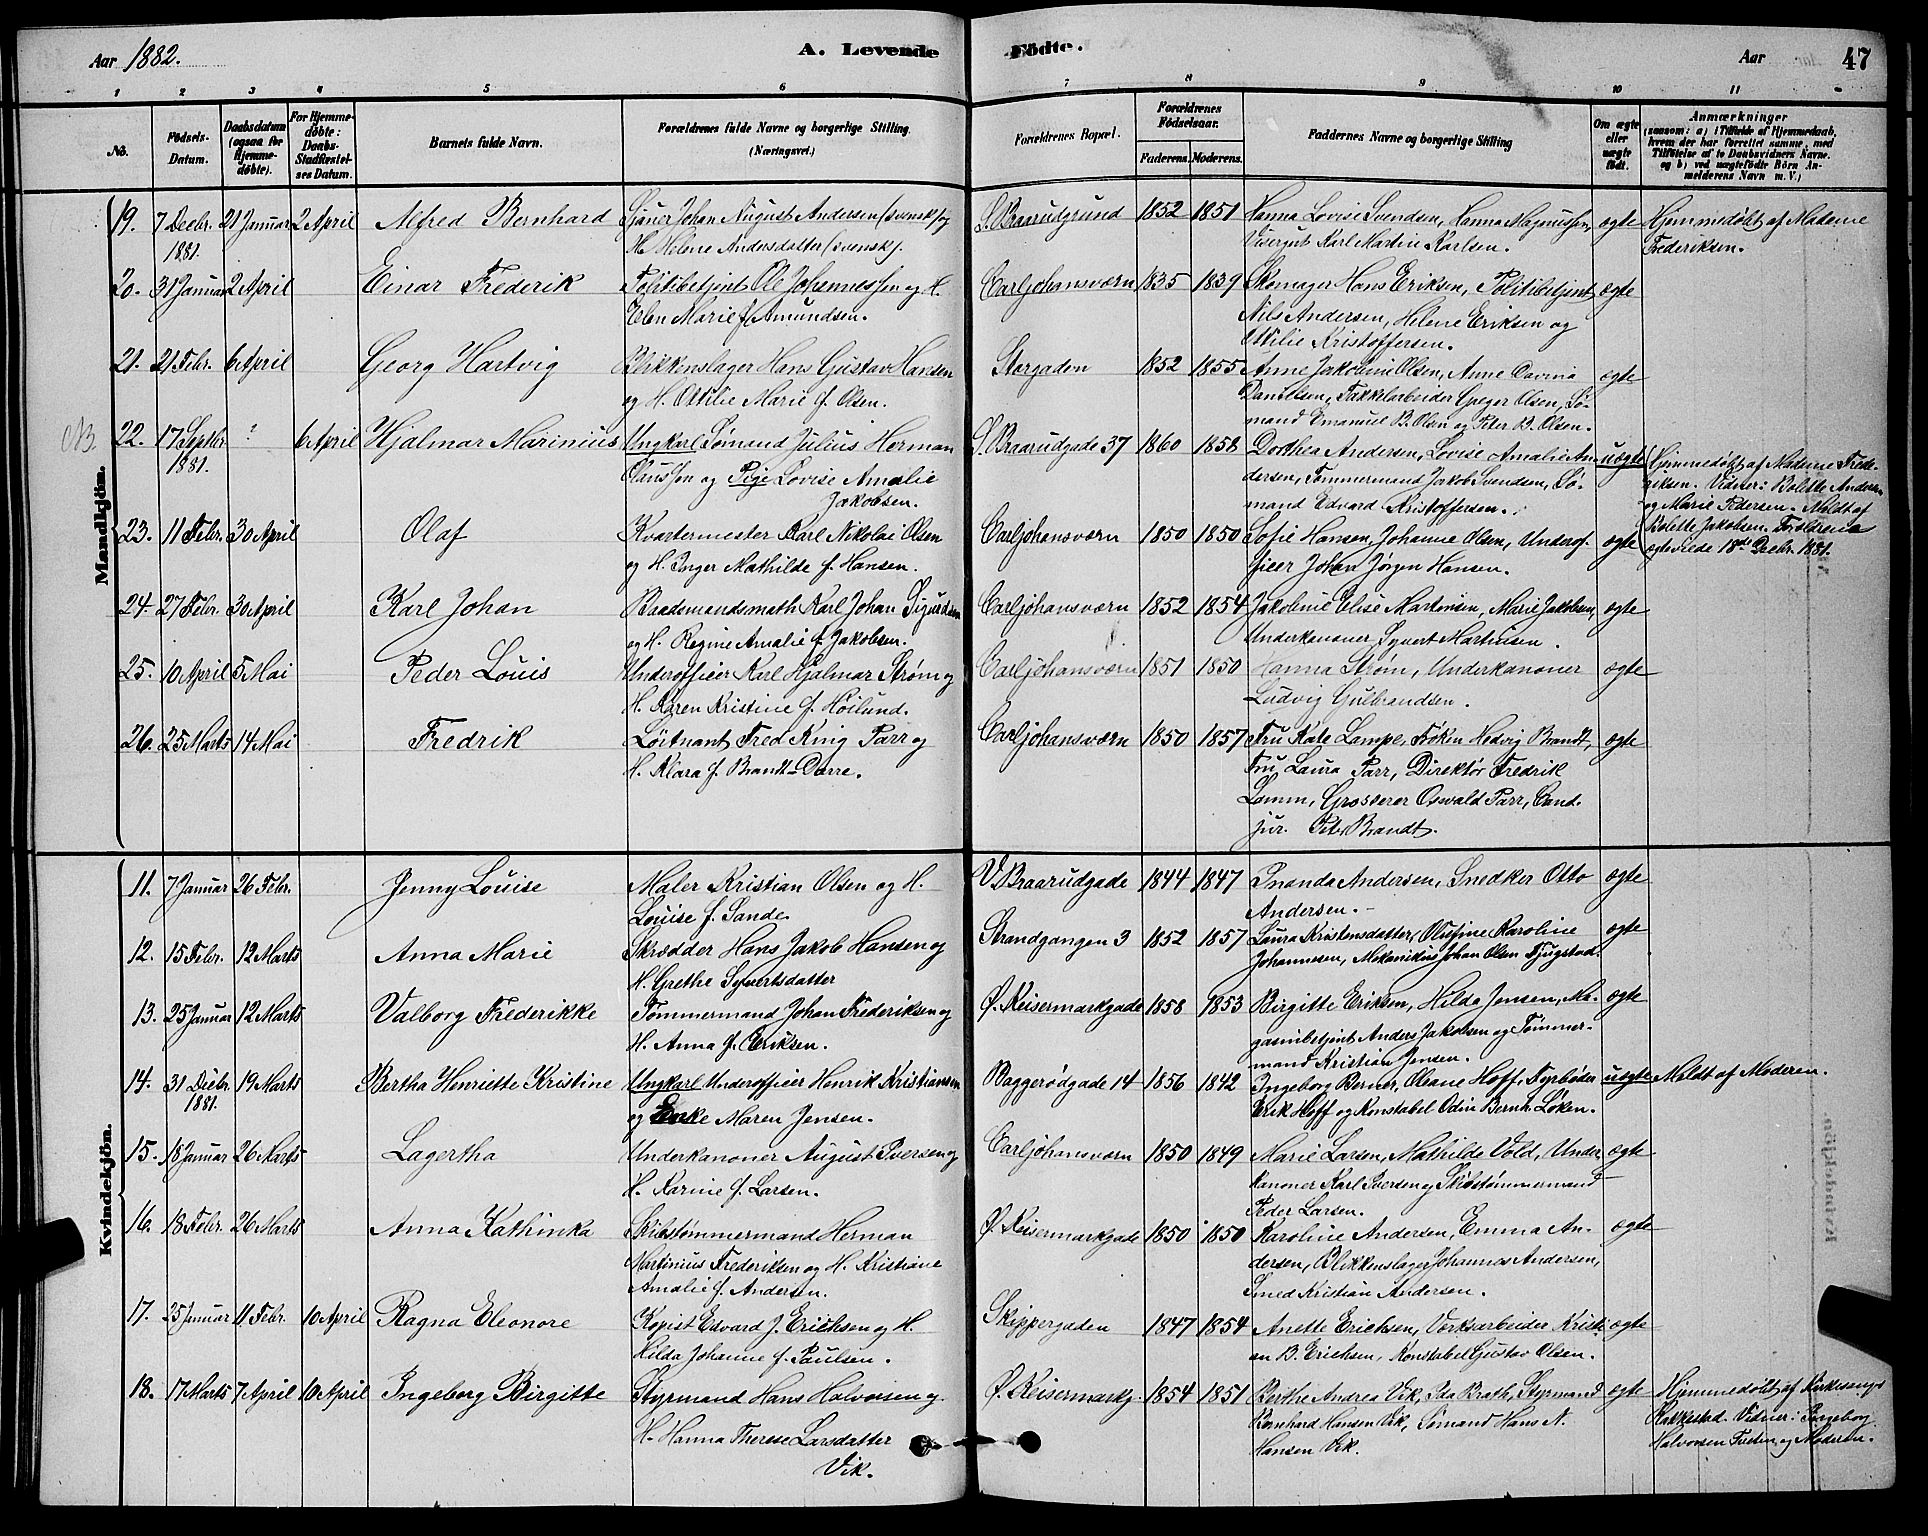 Aar 1882.
A. Levende
1 2 3 4 5 6
No.
Födsels-Datum.
Daabsdatum (ogsaa for Hjemme-døbte).
For Hjemme-døbte: Daabs-Stadfæstel-ses Datum.
Barnets fulde Navn.
Forældrenes fulde Navne og borgerlige Stilling. (Næringsvei.)
Mandkjön.
19. 7 Decbr. 21 Januar 2 April Alfred Bernhard Sjauer Johan August Andersen (svensk) og
1881. H. Helene Andersdatter (svensk).
20. 31 Januar 2 April Einar Frederik Politibetjent Ole Johannessen og H.
Elen Marie f. Amundsen.
21. 21 Febr. 6 April Georg Hartvig Blikkenslager Hans Gustav Hansen
og H. Ottilie Marie f. Olsen.
NB. 22. 17 Septbr. ? 6 April Hjalmar Marinius Ungkarl Sømand Julius Herman
1881. Olaussen og Pige Lovise Amalie
Jakobsen.
23. 11 Febr. 30 April Olaf Kvartermester Karl Nikolai Olsen
og H. Inger Mathilde f. Hansen.
24. 27 Febr. 30 April Karl Johan Baadsmandsmath Karl Johan Sigurdsen
og H. Regine Amalie f. Jakobsen.
25. 10 April 5 Mai Peder Louis Underofficer Karl Hjalmar Strøm og
H. Karen Kristine f. Höilund.
26. 25 Marts 14 Mai Fredrik Löitnant Fred King Parr og
H. Klara f. Brandt-Dørre.
Kvindekjön.
11. 7 Januar 26 Febr. Jenny Louise Maler Kristian Olsen og H.
Louise f. Sande.
12. 15 Febr. 12 Marts Anna Marie Skrædder Hans Jakob Hansen og
H. Grethe Syvertsdatter
13. 25 Januar 12 Marts Valborg Frederikke Tømmermand Johan Frederiksen og
H. Anna f. Eriksen.
14. 31 Decbr. 19 Marts Bertha Henriette Kristine Ungkarl Underofficer Henrik Kristiansen
1881. og Enke Maren Jensen.
15. 18 Januar 26 Marts Lagertha Underkanoner August Iversen og
H. Karine f. Larsen.
16. 18 Febr. 26 Marts Anna Kathinka Skibstømmermand Herman
Martinius Frederiksen og H. Kristiane
Amalie f. Andersen.
17. 25 Januar 11 Febr. 10 April Ragna Eleonore Kopist Edvard J. Erichsen og H.
Hilda Johanne f. Paulsen.
18. 17 Marts 7 April 10 April Ingeborg Birgitte Styrmand Hans Halvorsen og
H. Hanna Therese Larsdatter
Vik.
Födte.
Aar 47
7 8 9 10 11
Forældrenes Bopæl.
Forældrenes Födselsaar.
Faderens. Moderens.
Faddernes Navne og borgerlige Stilling
Om ægte eller uægte født.
Anmærkninger
(saasom: a) i Tilfælde af Hjemmedaab, hvem der har forrettet samme, med Tilföielse af to Daabsvidners Navne, og b) ved uægtefödte Börn An-melderens Navn m. V.)
S. Braarudgrund 1852 1851 Hanna Lovise Svendsen, Hanna Magnussen, ægte Hjemmedøbt af Madame
Visergut Karl Martin Karlsen. Frederiksen.
Carljohansværn 1835 1839 Skomager Hans Eriksen, Politibetjent ægte
Nils Andersen, Helene Eriksen og
Ottilie Kristoffersen.
Storgaden 1852 1855 Anne Jakobine Olsen, Anne Davina ægte
Danielsen, Takkelarbeider Greger Olsen, Sø-
mand Emanuel B. Olsen og Peter B. Olsen.
S. Braarudgade 37 1860 1858 Dorthea Andersen, Lovise Amalie An- uægte Hjemmedøbt af Madame Frede-
dersen, Tømmermand Jakob Svendsen, Sø- riksen. Vidner: Bolette Andersen
mand Edvard Kristoffersen. og Marie Pedersen. Meldt af
Carljohansværn 1850 1850 Sofie Hansen, Johanne Olsen, Underof- ægte Bolette Jakobsen. Forældrene
ficer Johan Jørgen Hansen. ægteviede 18de Decbr. 1881.
Carljohansværn 1852 1854 Jakobine Elise Martinsen, Marie Jakobsen, ægte
Underkanoner Syvert Martinsen.
Carljohansværn 1851 1850 Hanna Strøm, Underkanoner ægte
Ludvig Gulbrandsen.
Carljohansværn 1850 1857 Fru Kate Lampe, Frøken Hedvig Brandt, ægte
Fru Laura Parr, Direktør Fredrik
Lamm, Grosserer Oswald Parr, Cand.
jur. Peter Brandt.
V. Braarudgade 1844 1847 Inanda Andersen, Snedker Otto ægte
Andersen.
Strandgangen 3 1852 1857 Laura Kristensdatter, Olufine Karoline ægte
Johannesen, Mekanikus Johan Olsen Fjugstad.
Ø. Keisermarkgade 1858 1853 Birgitte Eriksen, Hilda Jensen, Ma- ægte
gasinbetjent Anders Jakobsen og Tømmer-
mand Kristian Jensen.
Baggerødgade 14 1856 1842 Ingeborg Berner, Oleane Hoff, Fyrbøder uægte Meldt af Moderen.
Erik Hoff og Konstabel Odin Bernh. Løken.
Carljohansværn 1850 1849 Marie Larsen, Mathilde Vold, Under- ægte
kanoner Karl Iversen og Skibstømmermand
Peder Larsen.
Ø. Keisermarkgade 1850 1850 Karoline Andersen, Emma An- ægte
dersen, Blikkenslager Johannes Andersen,
Smed Kristian Andersen.
Skippergaden 1847 1854 Anette Erichsen, Verksarbeider Kristi- ægte
an B. Erichsen, Konstabel Gustav Olsen.
Ø. Keisermarkg. 1854 1851 Berthe Andrea Vik, Ida Brath, Styrmand ægte Hjemmedøbt af Kirkesanger
Bernhard Hansen Vik, Sømand Hans A. Rakkestad. Vidner: Ingeborg
Hansen Vik. Halvorsen Tveten og Moderen.